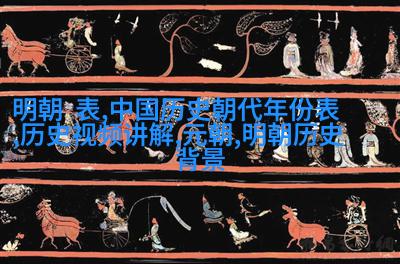 明朝 表,中国历史朝代年份表
,历史视频讲解,元朝,明朝历史
背景